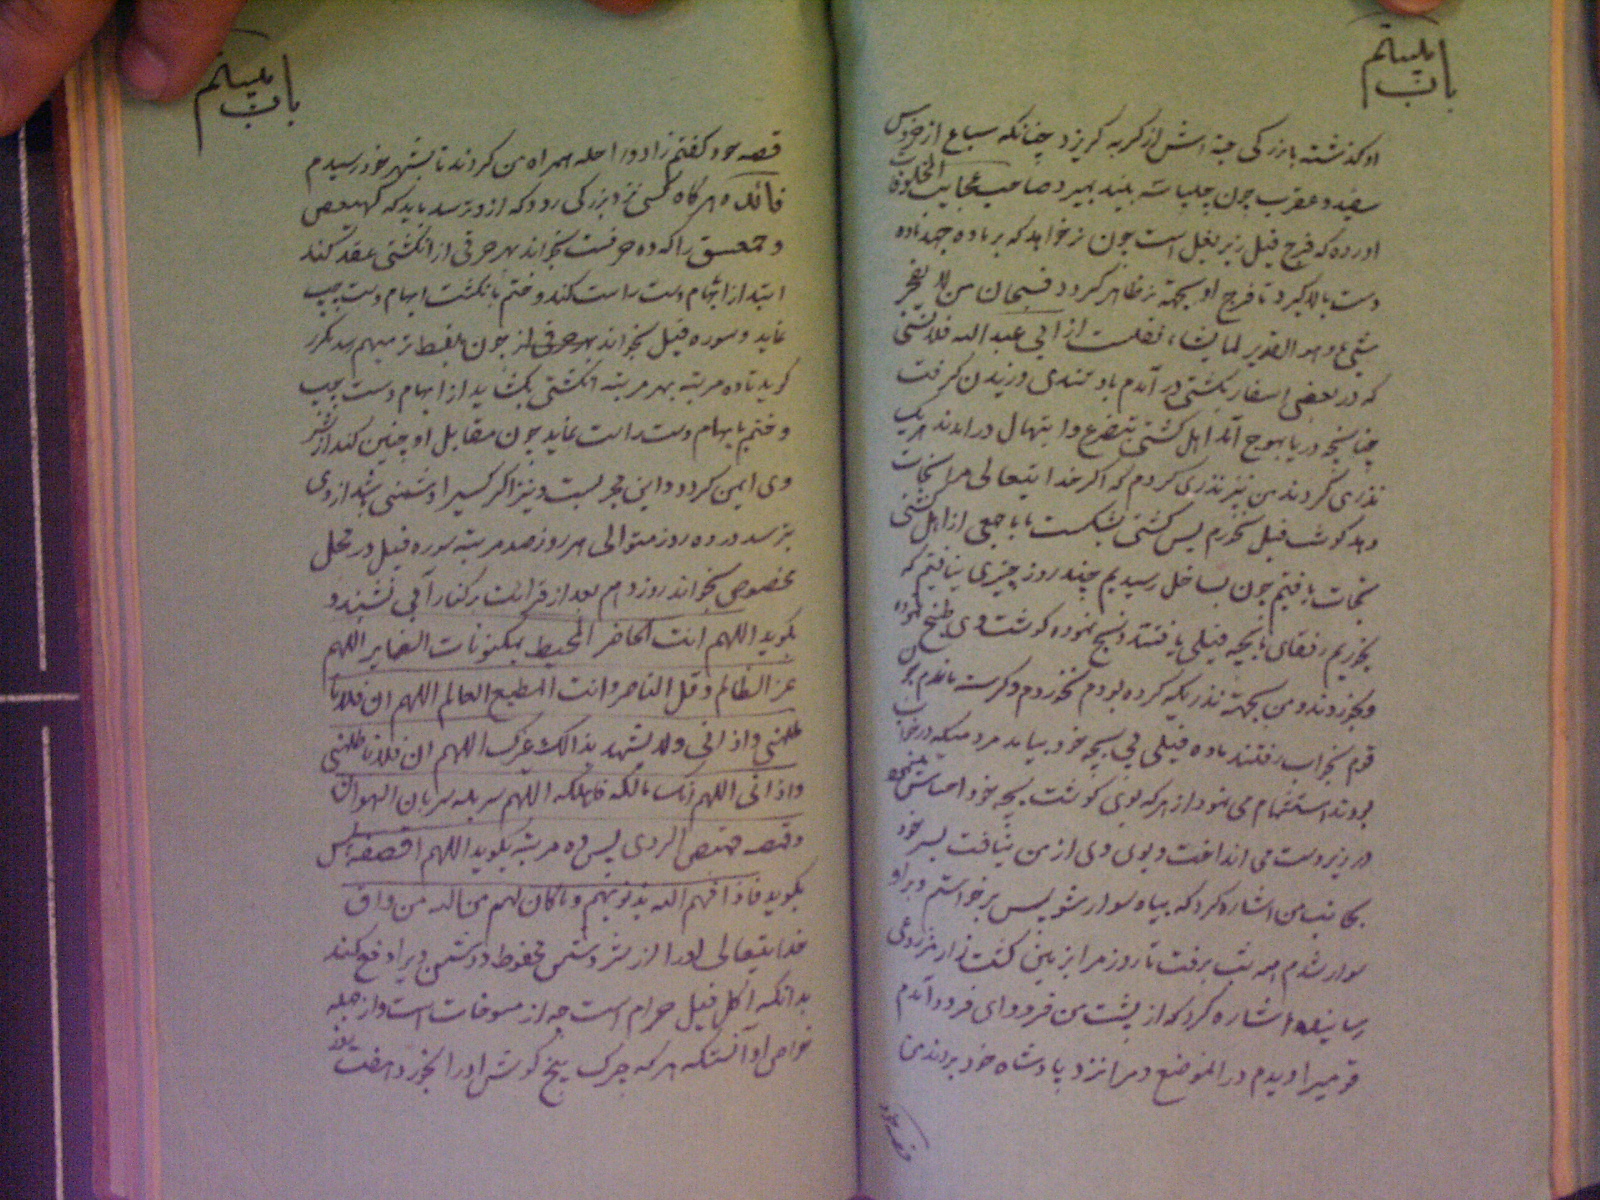 باب بیستم
او گذشته با بزرگی جثه اش از گربه گریزد چنانکه سباع از خروس
سفید و عقرب چون چلپاسه بیند بمیرد صاحب عجایب المخلوقات
آورده که فرج فیل زیر بغل است چون نر خواهد که بر ماده جهد ماده
دست بالا گیرد تا فرج او بجهة نر ظاهر گردد فسبحان من لا یعجز
شیء و هو القدیر لما یشاء نقلست از ابی عبد الله قلانسی
که در بعضی اسفار بکشتی در آمدم باد تندی وزیدن گرفت
چنانچه دریا بموج آمد اهل کشتی بتضرع و ابتهال در آمدند هر یک
نذری کردند من نیز نذری کردم که اگر خدایتعالی مرا نجات
دهد گوشت فیل نخورم پس کشتی بشکست ما با جمعی از اهل کشتی
نجات یافتیم چون بساحل رسیدیم چند روز چیزی نیافتیم که
بخوریم رفقای ما بچه فیلی یافتند ذبح نموده گوشت وی طبخ نموده
و بخوردند و من بجهته نذریکه کرده بودم نخوردم و گرسنه ماندم چون
قوم بخواب رفتند ماده فیلی پی بچه خود بیامد مردمیکه در خواب
بودند استشمام می نمود از هر که بوی گوشت بچه خود احساس مینمود
در زیر دست می انداخت و بوی وی از من نیافت پس خود
بجانب من اشاره کرد که بیا و سوار شو پس برخواستم و بر او
سوار شدم همه شب برفت تا روز مرا بزمین کشت زار مزروعی
رسانید و اشاره کرد که از پشت من فرود ای فرود آمدم
قومیرا دیدم در الموضع و مرا نزد پادشاه خود بردند من
قصه خود
باب بیستم
قصه خود گفتم زاد و راحله همراه من کردند تا بشهر خود رسیدم
فائده هر گاه کسی نزد بزرگی رود که از او ترسد باید که کهیعص
و حمعسق را که ده حرفست بخواند بهر حرفی از انگشتی عقد کند
ابتدا از ابهام دست راست کند و ختم بانگشت ابهام دست چپ
نماید و سوره فیل بخواند چون بلفظ ترمیهم رسد مکرر
گوید تا ده مرتبه بهر مرتبه انگشتی بگشاید از ابهام دست چپ
و ختم بابهام دست راست نماید چون مقابل او چنین کند از شر
وی ایمن گردد و این مجربست و نیز اگر کسیرا دشمنی باشد از وی
بترسد در ده روز متوالی هر روز صد مرتبه سوره فیل در محل
مخصوص بخواند روز دهم بعد از قرائت بر کنار آبی نشیند و
بگوید اللهم انت الحاضر المحیط بمکنونات الضمایر اللهم
عز الظالم و قل الناصر و انت المطلع العالم اللهم ان فلانا
ظلمنی و اذانی و لا یشهد بذالک غیرک اللهم ان فلانا ظلمنی
و اذانی اللهم انک مالکه فاهلکه اللهم سربله سربال الهوان
و قمصه قمیص الردی پس ده مرتبه بگوید اللهم اقصفه پس
بگوید فاخذهم الله بذنوبهم و ما کان لهم من الله من واق
خدایتعالی اورا از شر دشمن محفوظ و دشمن ویرا دفع کند
بدانکه اکل فیل حرام است چه از مسوخات است و از جمله
خواص او آنستکه هر که چرک بیخ گوش او را بخورد هفت روز